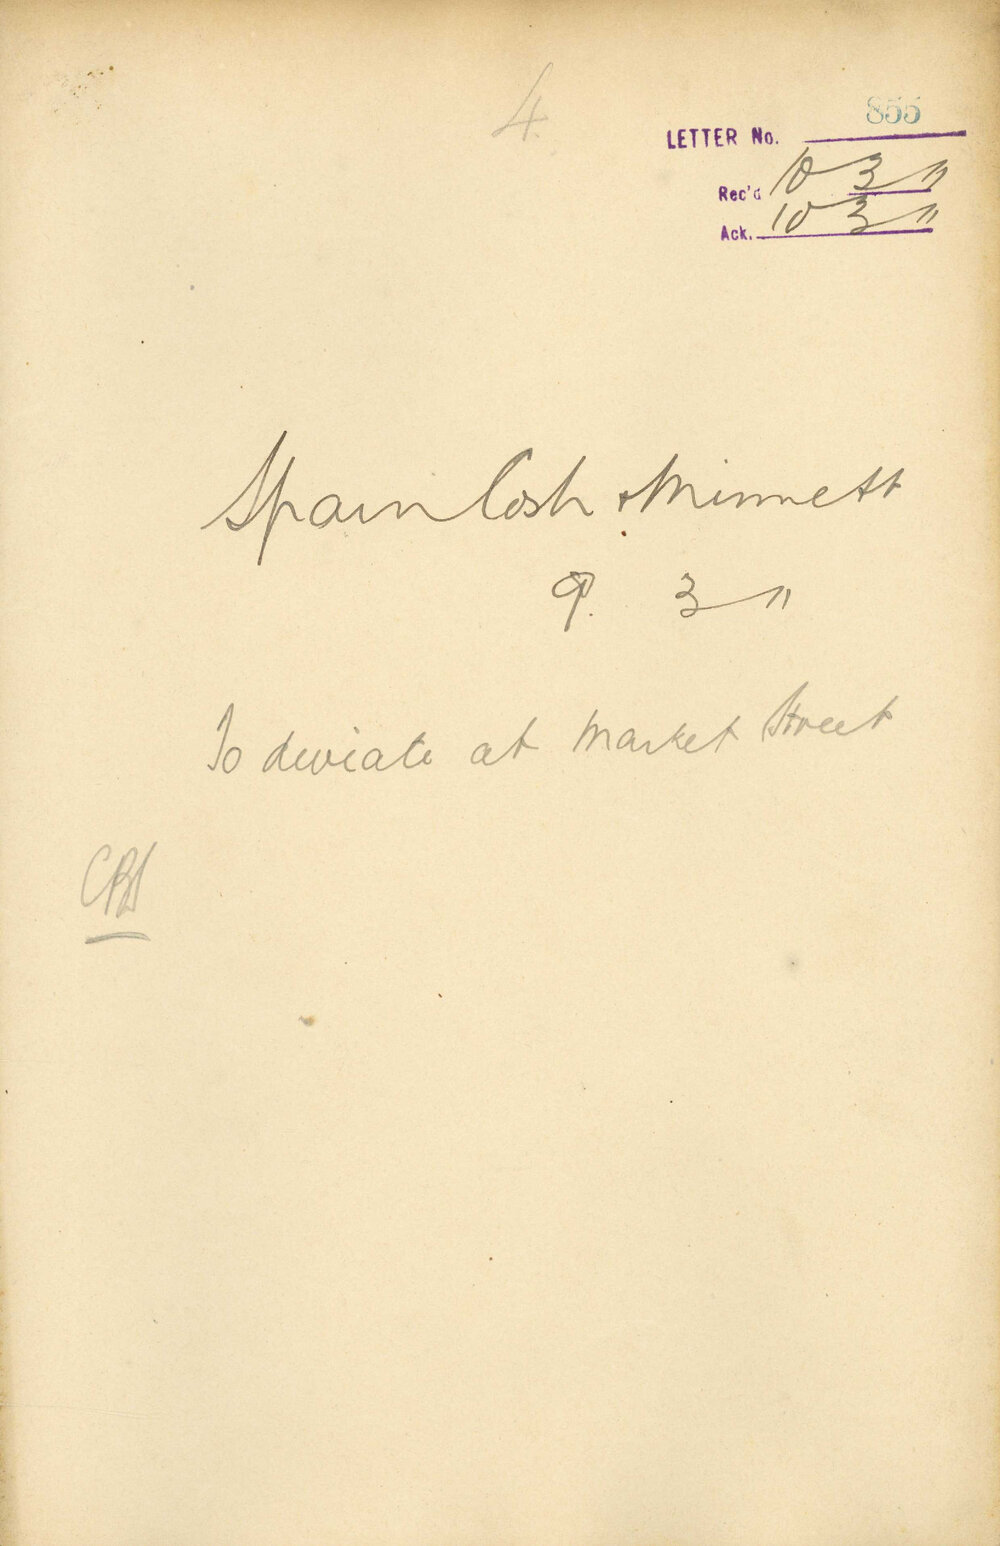 4
LETTER No. 855
Rec'd 10 3 11
Ack. 10 3 11
Spain Cosh & Minnett
9. 3 11
To deviate at Market Street